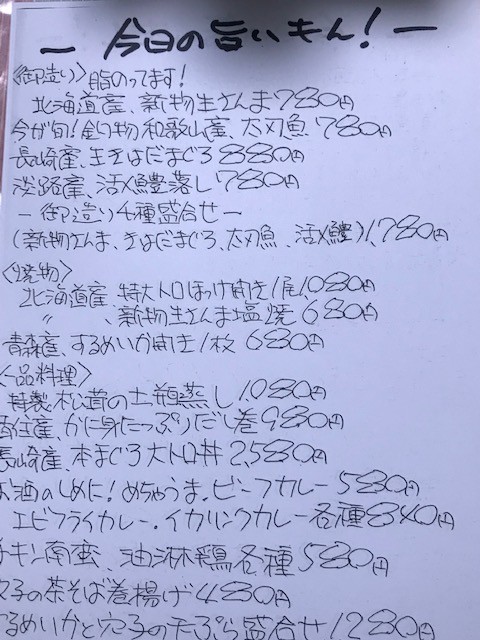 ― 今日の旨いもん！ ―
〈御造り〉脂のってます！
北海道産、新物生さんま780円
今が旬！釣り物和歌山産、太刀魚 780円
長崎産、生きはだまぐろ 880円
淡路産、活〆鱧落し 780円
― 御造り4種盛合せ ―
(新物さんま、きはだまぐろ、太刀魚、活〆鱧)1,780円
〈焼物〉
北海道産 特大トロほっけ開き1尾1,080円
〃 、新物生さんま塩焼 680円
青森産、するめいか開き1枚 680円
〈一品料理〉
特製松茸の土瓶蒸し1,080円
香住産、かに身たっぷりだし巻980円
長崎産、本まぐろ大トロ丼 2,580円
お酒のしめに！めちゃうま、ビーフカレー 580円
エビフライカレー・イカリングカレー各種840円
チキン南蛮、油淋鶏各種580円
穴子の茶そば巻揚げ480円
するめいかと穴子の天ぷら盛合せ1280円